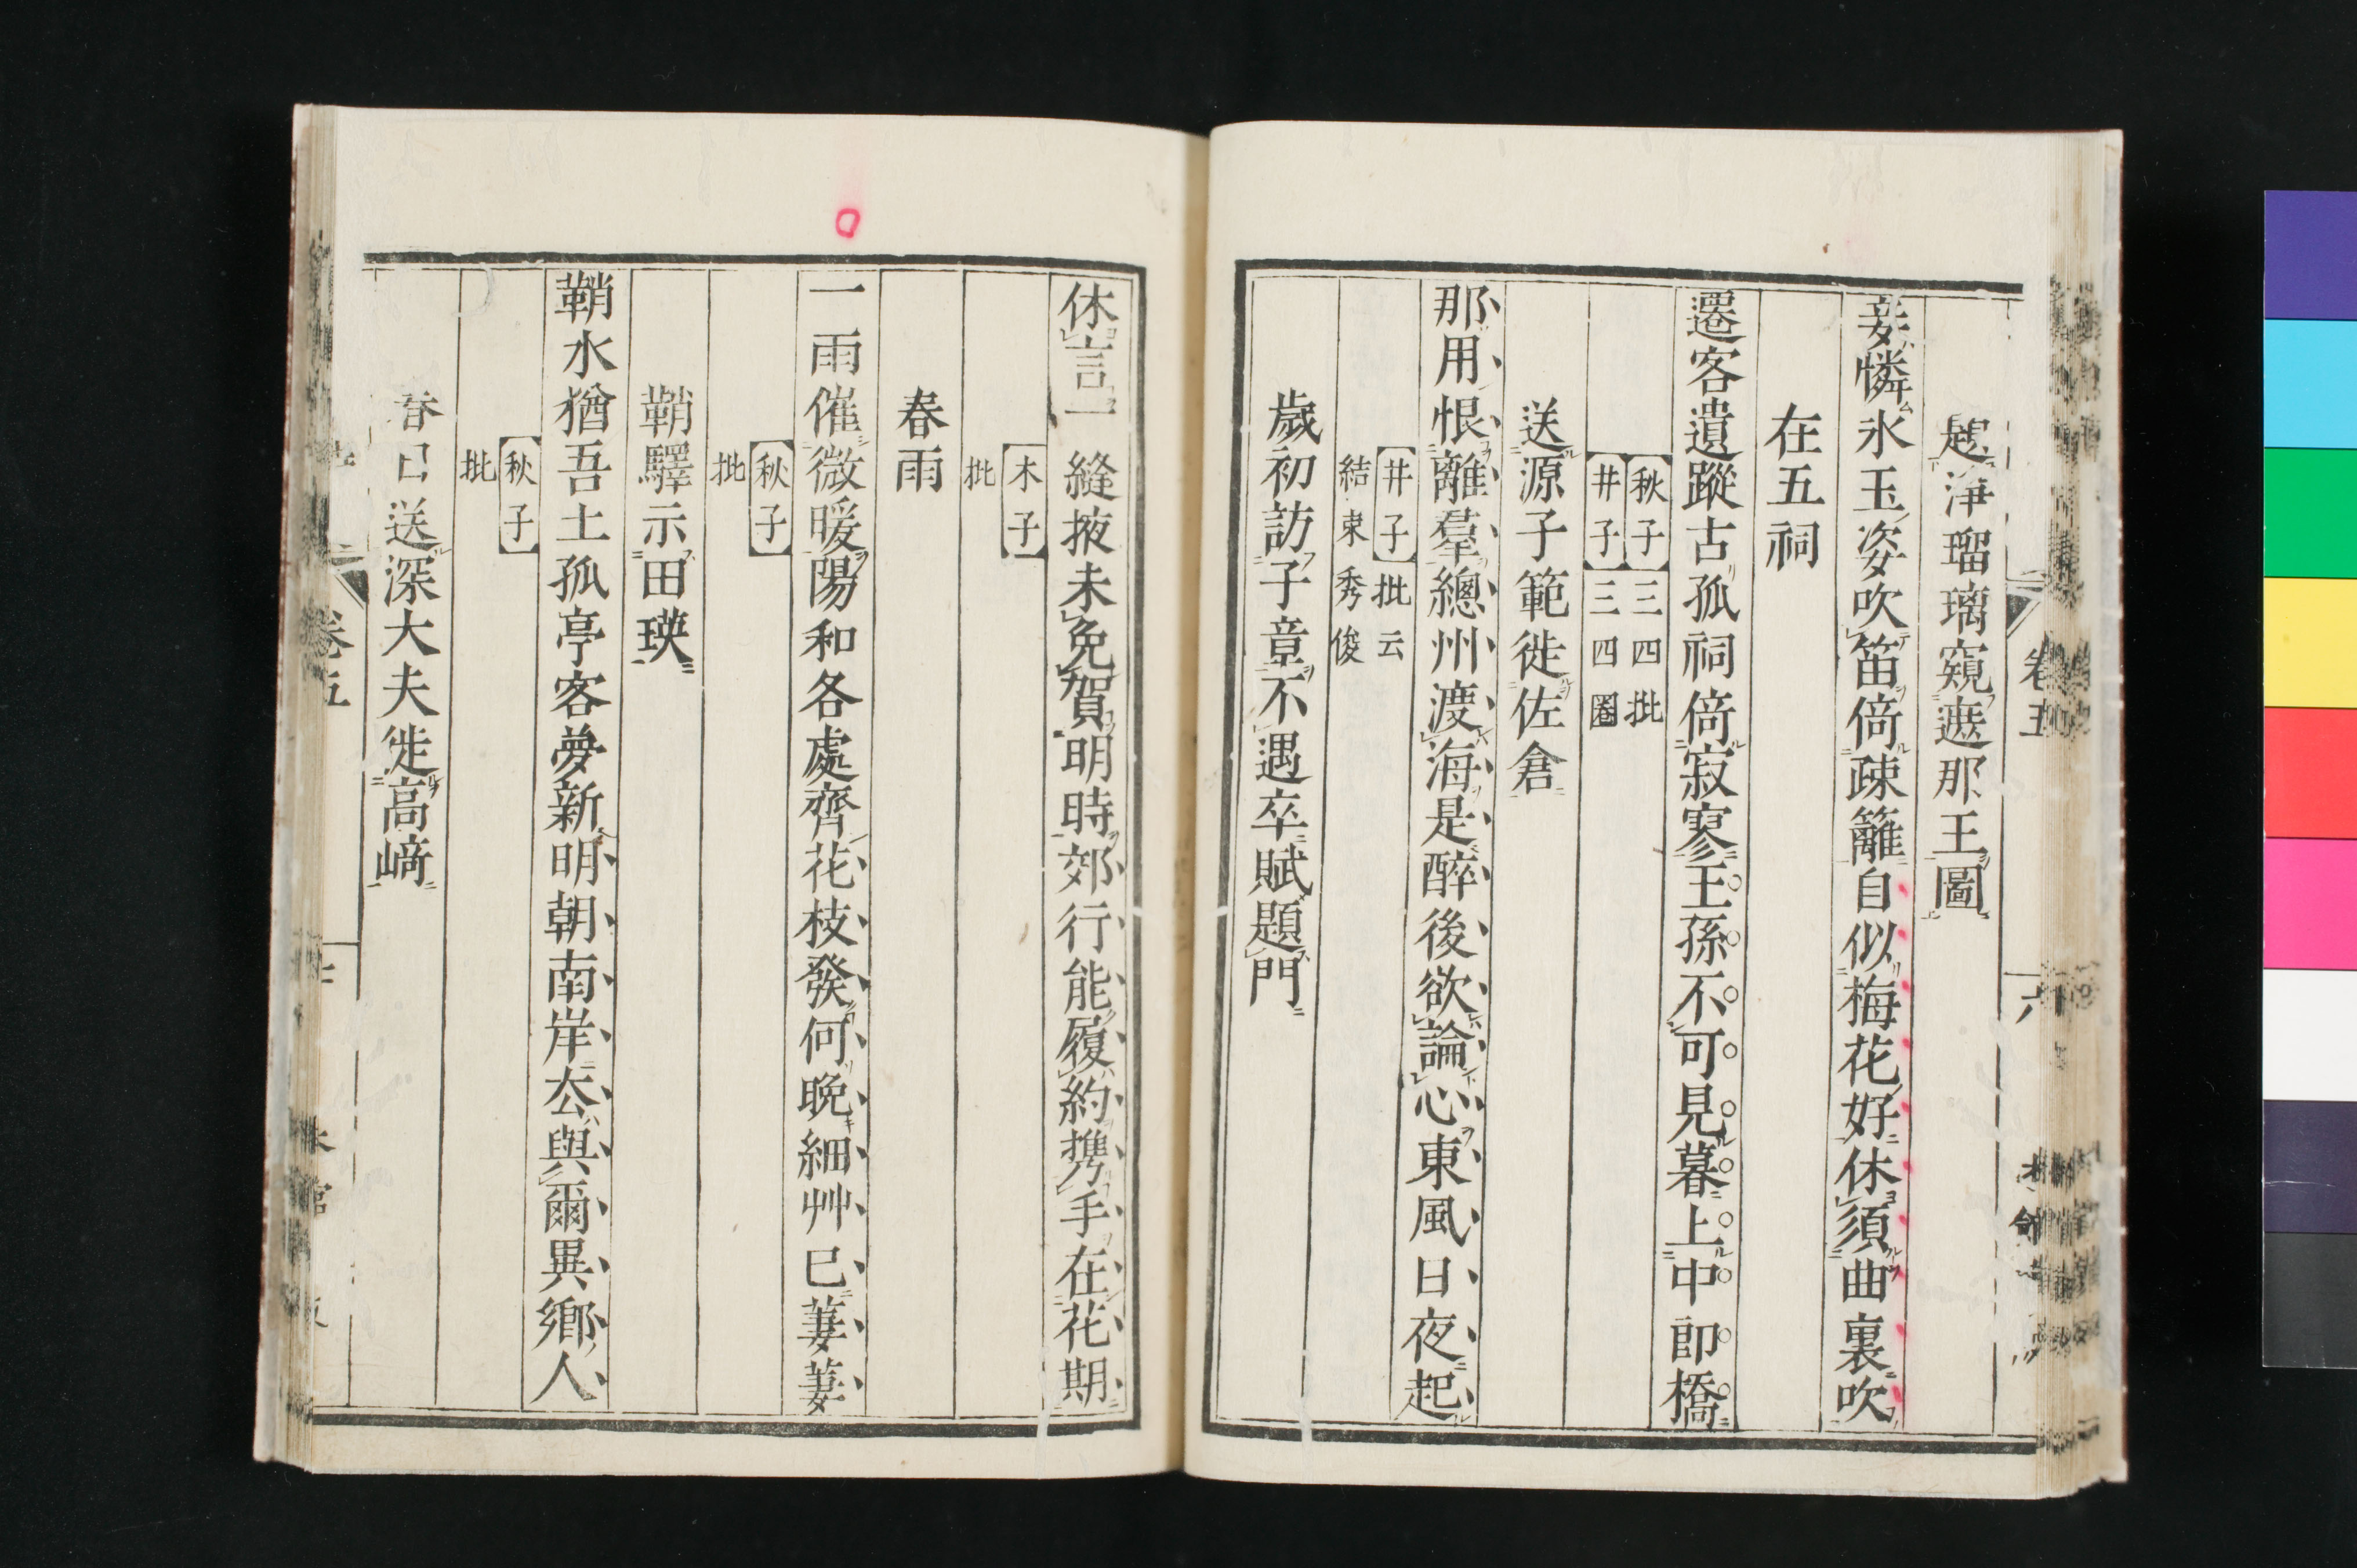 題淨瑠璃窺遮那王圖
妾憐氷玉姿吹笛倚疎籬自似梅花好休須曲裏吹
在五祠
遷客遺蹤古孤祠倚寂寥王孫不可見暮上中即橋
秋子三四批
井子三四圈
送源子範徙佐倉
那用恨離羣總州渡海是醉後欲論心東風日夜起
井子批云
結束秀俊
歲初訪子章不遇卒賦題門
休言一縫掖未免賀明時郊行能履約携手在花期
木子
批
春雨
一雨催微暖陽和各處齊花枝發何晚細艸巳萋萋
秋子
批
鞘驛示田瑛
鞘水猶吾土孤亭客夢新明朝南岸厺與爾異鄉人
秋子
批
春日送深大夫徙高﨑
卷五
六
卷五